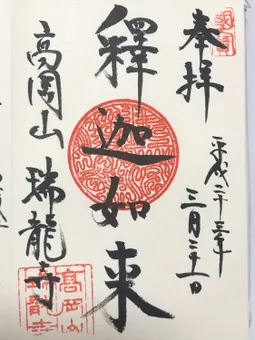 奉拝
平成二十三年
三月三十一日
釋迦如来
高岡山 瑞龍寺
高岡山
瑞龍寺